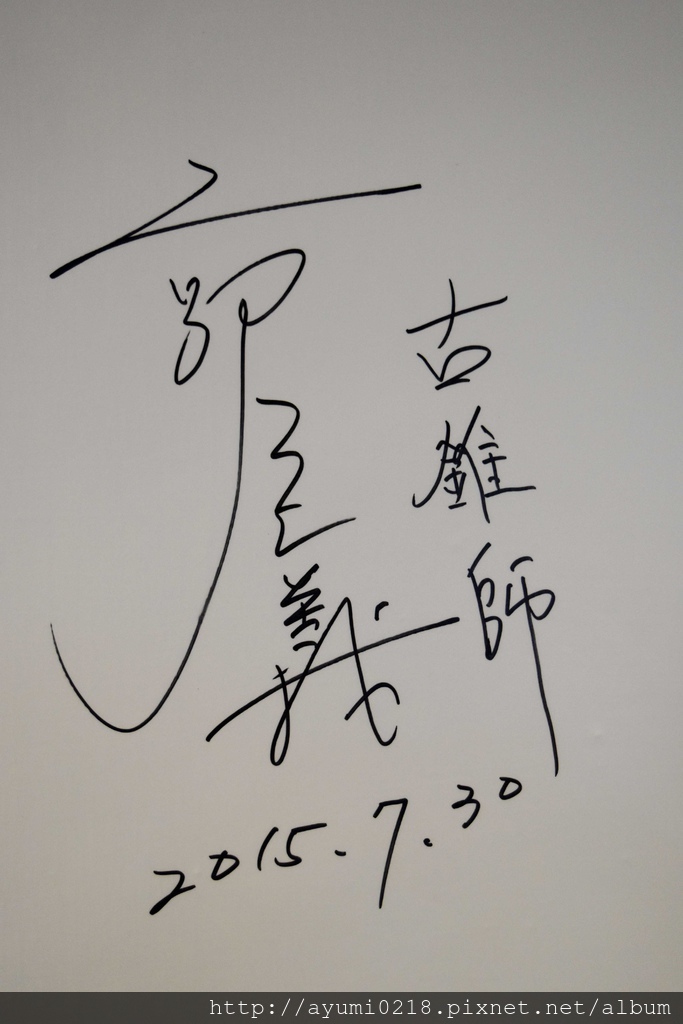 古雄師
2015.7.30
http://ayumi0218.pixnet.net/album